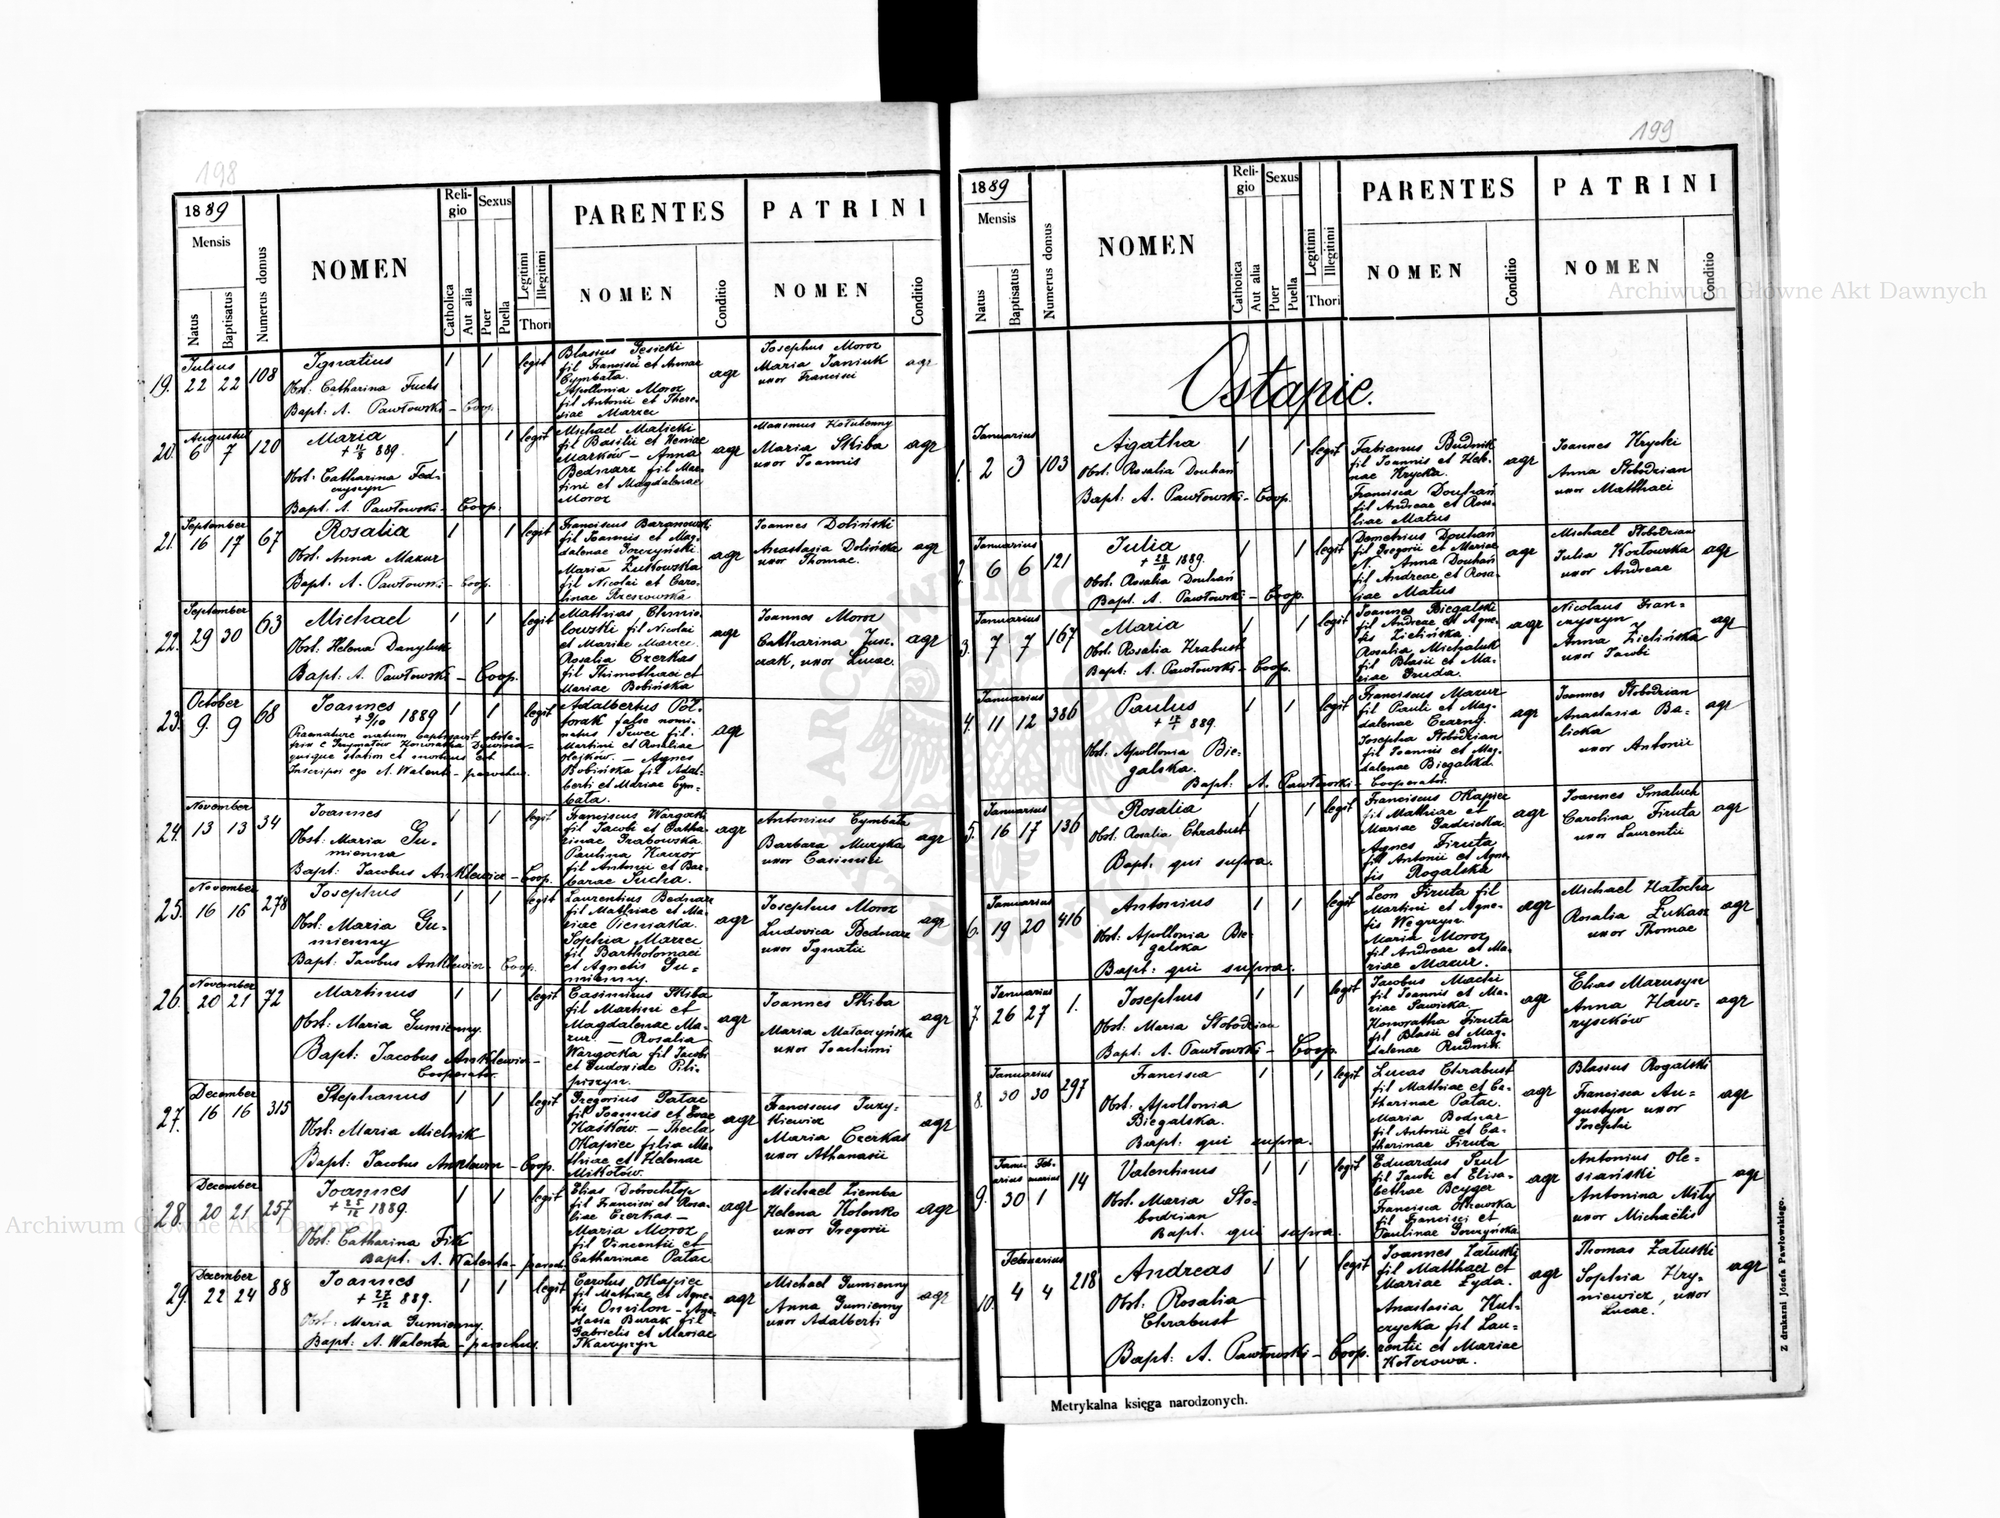 198
1889
Mensis
Natus
Baptisatus
Numerus domus
NOMEN
Reli-
gio
Catholica
Aut alia
Sexus
Puer
Puella
Legitimi
Illegitimi
Thori
PARENTES
NOMEN
Conditio
PATRINI
NOMEN
Conditio
19. Julius
22 22 108
Ignatius
Obst: Catharina Fuchs
Bapt: A. Pawłowski – Coop.
1 1 legit
Blasius Gęsicki
fil Francisci et Annae
Cymbała.
Apollonia Moroz
fil Antonii et There-
siae Marzec
agr
Josephus Moroz
Maria Janiuk
uxor Francisci
agr
20. Augustus
6 7 120
Maria
+ 11/8 889.
Obst: Catharina Fed-
czyszyn
Bapt: A. Pawłowski – Coop.
1 1 legit
Michael Malicki
fil Basilii et Xeniae
Marków – Anna
Bednarz fil Mar-
tini et Magdalenae
Moroz
agr
Maximus Hołubenny
Maria Skiba
uxor Joannis
agr
21. September
16 17 67
Rosalia
Obst: Anna Mazur
Bapt: A. Pawłowski – Coop.
1 1 legit
Franciscus Baranowski
fil Joannis et Mag-
dalenae
Maria Żukowska
fil Nicolai et Caro-
linae Rzeszowska
agr
Joannes Doliński
Anastasia Dolińska
uxor Thomae.
agr
22. September
29 30 63
Michael
Obst: Helena Danyluk
Bapt: A. Pawłowski – Coop.
1 1 legit
Matthias Chmie-
lowski fil Nicolai
et Mariae Marzec.
Rosalia Czerkas
fil Thimothaei et
Mariae Bobińska
agr
Joannes Moroz
Catharina Jusz-
czak, uxor Lucae.
agr
23. October
9. 9 68
Joannes
+ 9/10 1889
Praemature natum baptisavit obste-
trix
quique statim et mortuus est.
Inscripsi ego A. Walenta – parochus.
1 1 legit
Adalbertus Pół-
torak false nomi-
natus
Martini et Rosaliae
Olejków. – Agnes
Bobińska fil Adal-
berti et Mariae Cym-
bała.
agr
24. November
13 13 34
Joannes
Obst: Maria Gu-
mienna
Bapt: Jacobus Anklewicz – Coop.
1 1 legit
Franciscus Wargacki
fil Jacobi et Catha-
rinae Grabowska.
Paulina Kaczor
fil Antonii et Bar-
barae Sucha.
agr
Antonius Cymbała
Barbara Muzyka
uxor Casimiri
agr
25. November
16 16 278
Josephus
Obst: Maria Gu-
mienny
Bapt: Jacobus Anklewicz – Coop.
1 1 legit
Laurentius Bednarz
fil Matthiae et Ma-
riae Pieniaka.
Sophia Marzec
fil Bartholomaei
et Agnetis Gu-
mienny.
agr
Josephus Moroz
Ludovica Bednarz
uxor Ignatii
agr
26. November
20 21 72
Martinus
Obst: Maria Gumienny.
Bapt: Jacobus Anklewicz –
Cooperator.
1 1 legit
Casimirus Skiba
fil Martini et
Magdalenae Ma-
zur – Rosalia
Wargocka fil Jacobi
et Eudoxiae Pili-
piszyn.
agr
Joannes Skiba
Maria Małaczyńska
uxor Joachimi
agr
27. December
16 16 315
Stephanus
Obst: Maria Mielnik
Bapt: Jacobus Anklewicz – Coop.
1 1 legit
Gregorius Patac
fil Joannis et Evae
Kaśków. – Thecla
Okapiec filia Ma-
thiae et Helenae
Mikołów.
agr
Franciscus Juzy-
kiewicz
Maria Czerkas
uxor Athanasii
agr
28. December
20 21 257
Joannes
+ 25/12 1889.
Obst: Catharina Fik
Bapt: A. Walenta – paroch.
1 1 legit
Elias Dobrochłop
fil Francisci et Rosa-
liae Czerkas –
Maria Moroz
fil Vincentii et
Catharinae Patac
agr
Michael Ziemba
Helena Kolenko
uxor Gregorii
agr
29. December
22 24 88
Joannes
+ 27/12 889.
Obst: Maria Gumienny.
Bapt: A. Walenta – parochus.
1 1 legit
Carolus Okapiec
fil Mathiae et Agne-
tis – Ana-
stasia Burak fil
Gabrielis et Mariae
Tkaczyszyn
agr
Michael Gumienny
Anna Gumienny
uxor Adalberti
agr
199
1889
Mensis
Natus
Baptisatus
Numerus domus
NOMEN
Reli-
gio
Catholica
Aut alia
Sexus
Puer
Puella
Legitimi
Illegitimi
Thori
PARENTES
NOMEN
Conditio
PATRINI
NOMEN
Conditio
Ostapie.
1. Januarius
2 3 103
Agatha
Obst: Rosalia Douhań
Bapt: A. Pawłowski – Coop.
1 1 legit
Fabianus Budnik
fil Joannis et Hele-
nae Krycka.
Francisca Douhań
fil Andreae et Rosa-
liae Matus
agr
Joannes Krycki
Anna Słobodzian
uxor Matthaei
2. Januarius
6 6 121
Julia
+ 28/11 1889.
Obst: Rosalia Douhań
Bapt. A. Pawłowski – Coop.
1 1 legit
Demetrius Douhań
fil Gregorii et Mariae
N. Anna Douhań
fil Andreae et Rosa-
liae Matus
agr
Michael Słobodzian
Julia Kozłowska
uxor Andreae
agr
3. Januarius
7 7 167
Maria
Obst: Rosalia Hrabust
Bapt: A. Pawłowski – Coop.
1 1 legit
Joannes Biegalski
fil Andreae et Agne-
tis Zielińska.
Rosalia Michaluk
fil Blasii et Ma-
riae Gruda.
agr
Nicolaus Fran-
czyszyn
Anna Zielińska
uxor Jacobi
agr
4. Januarius
11 12 386
Paulus
889.
Obst: Apollonia Bie-
galska.
Bapt: A. Pawłowski – Cooperator.
1 1 legit
Franciscus Mazur
fil Pauli et Mag-
dalenae Czarny.
Josepha Słobodzian
fil Joannis et Mag-
dalenae Biegalska.
agr
Joannes Słobodzian
Anastasia Ba-
licka
uxor Antonii
agr
5. Januarius
16 17 136
Rosalia
Obst: Rosalia Chrabust
Bapt. qui supra.
1 1 legit
Franciscus Okapiec
fil Mathiae et
Mariae Gadzicka.
Agnes Firuta
fil Antonii et Agne-
tis Rogalska
agr
Joannes Smaluch
Carolina Firuta
uxor Laurentii
agr
6. Januarius
19 20 416
Antonius
Obst: Apollonia Bie-
galska
Bapt: qui supra.
1 1 legit
Leon Firuta fil
Martini et Agne-
tis Węgrzyn.
Maria Moroz
fil Andreae et Ma-
riae Mazur.
agr
Michael Hałocha
Rosalia Łukasz
uxor Thomae
agr
7. Januarius
26 27 1.
Josephus
Obst: Maria Słobodzian
Bapt: A. Pawłowski – Coop.
1 1 legit
Jacobus Machi
fil Joannis et Ma-
riae Sawicka.
Honoratha Firuta
fil Blasii et Mag-
dalenae Rudnik.
agr
Elias Marusyn
Anna Haw-
ryszków
agr
8. Januarius
30 30 297
Francisca
Obst: Apollonia
Biegalska.
Bapt: qui supra.
1 1 legit
Lucas Chrabust
fil Mathiae et Ca-
tharinae Patac.
Maria Bednar
fil Antonii et Ca-
tharinae Firuta
agr
Blasius Rogalski
Francisca Au-
gustyn uxor
Josephi
agr
9. Janu-
arius Feb-
ruarius
30 1 14
Valentinus
Obst: Maria Sło-
bodzian
Bapt. qui supra.
1 1 legit
Eduardus Szul
fil Jacobi et Elisa-
bethae Beyger
Francisca Olszewska
fil Francisci et
Paulinae Gorzyńska
agr
Antonius Ole-
siański
Antonina Miły
uxor Michaëlis
agr
10. Februarius
4 4 218
Andreas
Obst. Rosalia
Chrabust
Bapt: A. Pawłowski – Coop.
1 1 legit
Joannes Załuski
fil Matthaei et
Mariae Łyda.
Anastasia Kul-
czycka fil Lau-
rentii et Mariae
Kotczowa.
agr
Thomas Załuski
Sophia Hry-
niewicz, uxor
Lucae.
agr
Metrykalna księga narodzonych.
Z drukarni Józefa Pawłowskiego.
Archiwum Główne Akt Dawnych
Archiwum Główne Akt Dawnych